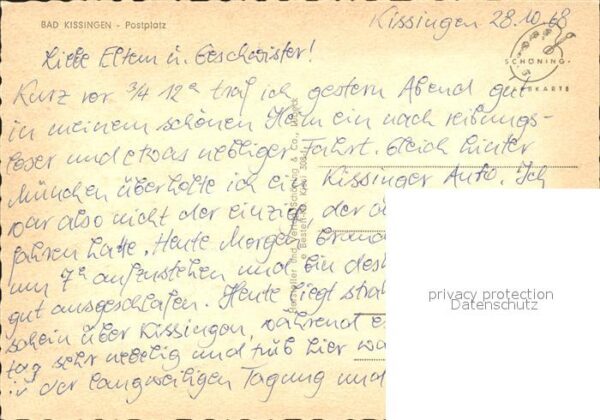 BAD KISSINGEN - Postplatz
Kissingen 28.10.68
Liebe Eltern u. Geschwister!
SCHÖNING
KARTE
Kurz vor 3/4 12h traf ich gestern Abend gut
in meinem schönen Heim ein nach reibungs-
loser und etwas nebliger Fahrt. Gleich hinter
München überholte ich ein Kissinger Auto. Ich
war also nicht der einzige, der
fahren hatte. Heute Morgen
um 7h aufzustehen und bin des
gut ausgeschlafen. Heute liegt strah
schein über Kissingen, während
tag sehr neblig und trüb hier wa
der langweiligen Tagung und
Schöning & Co., Lübeck
Bestell-Nr.
privacy protection
Datenschutz